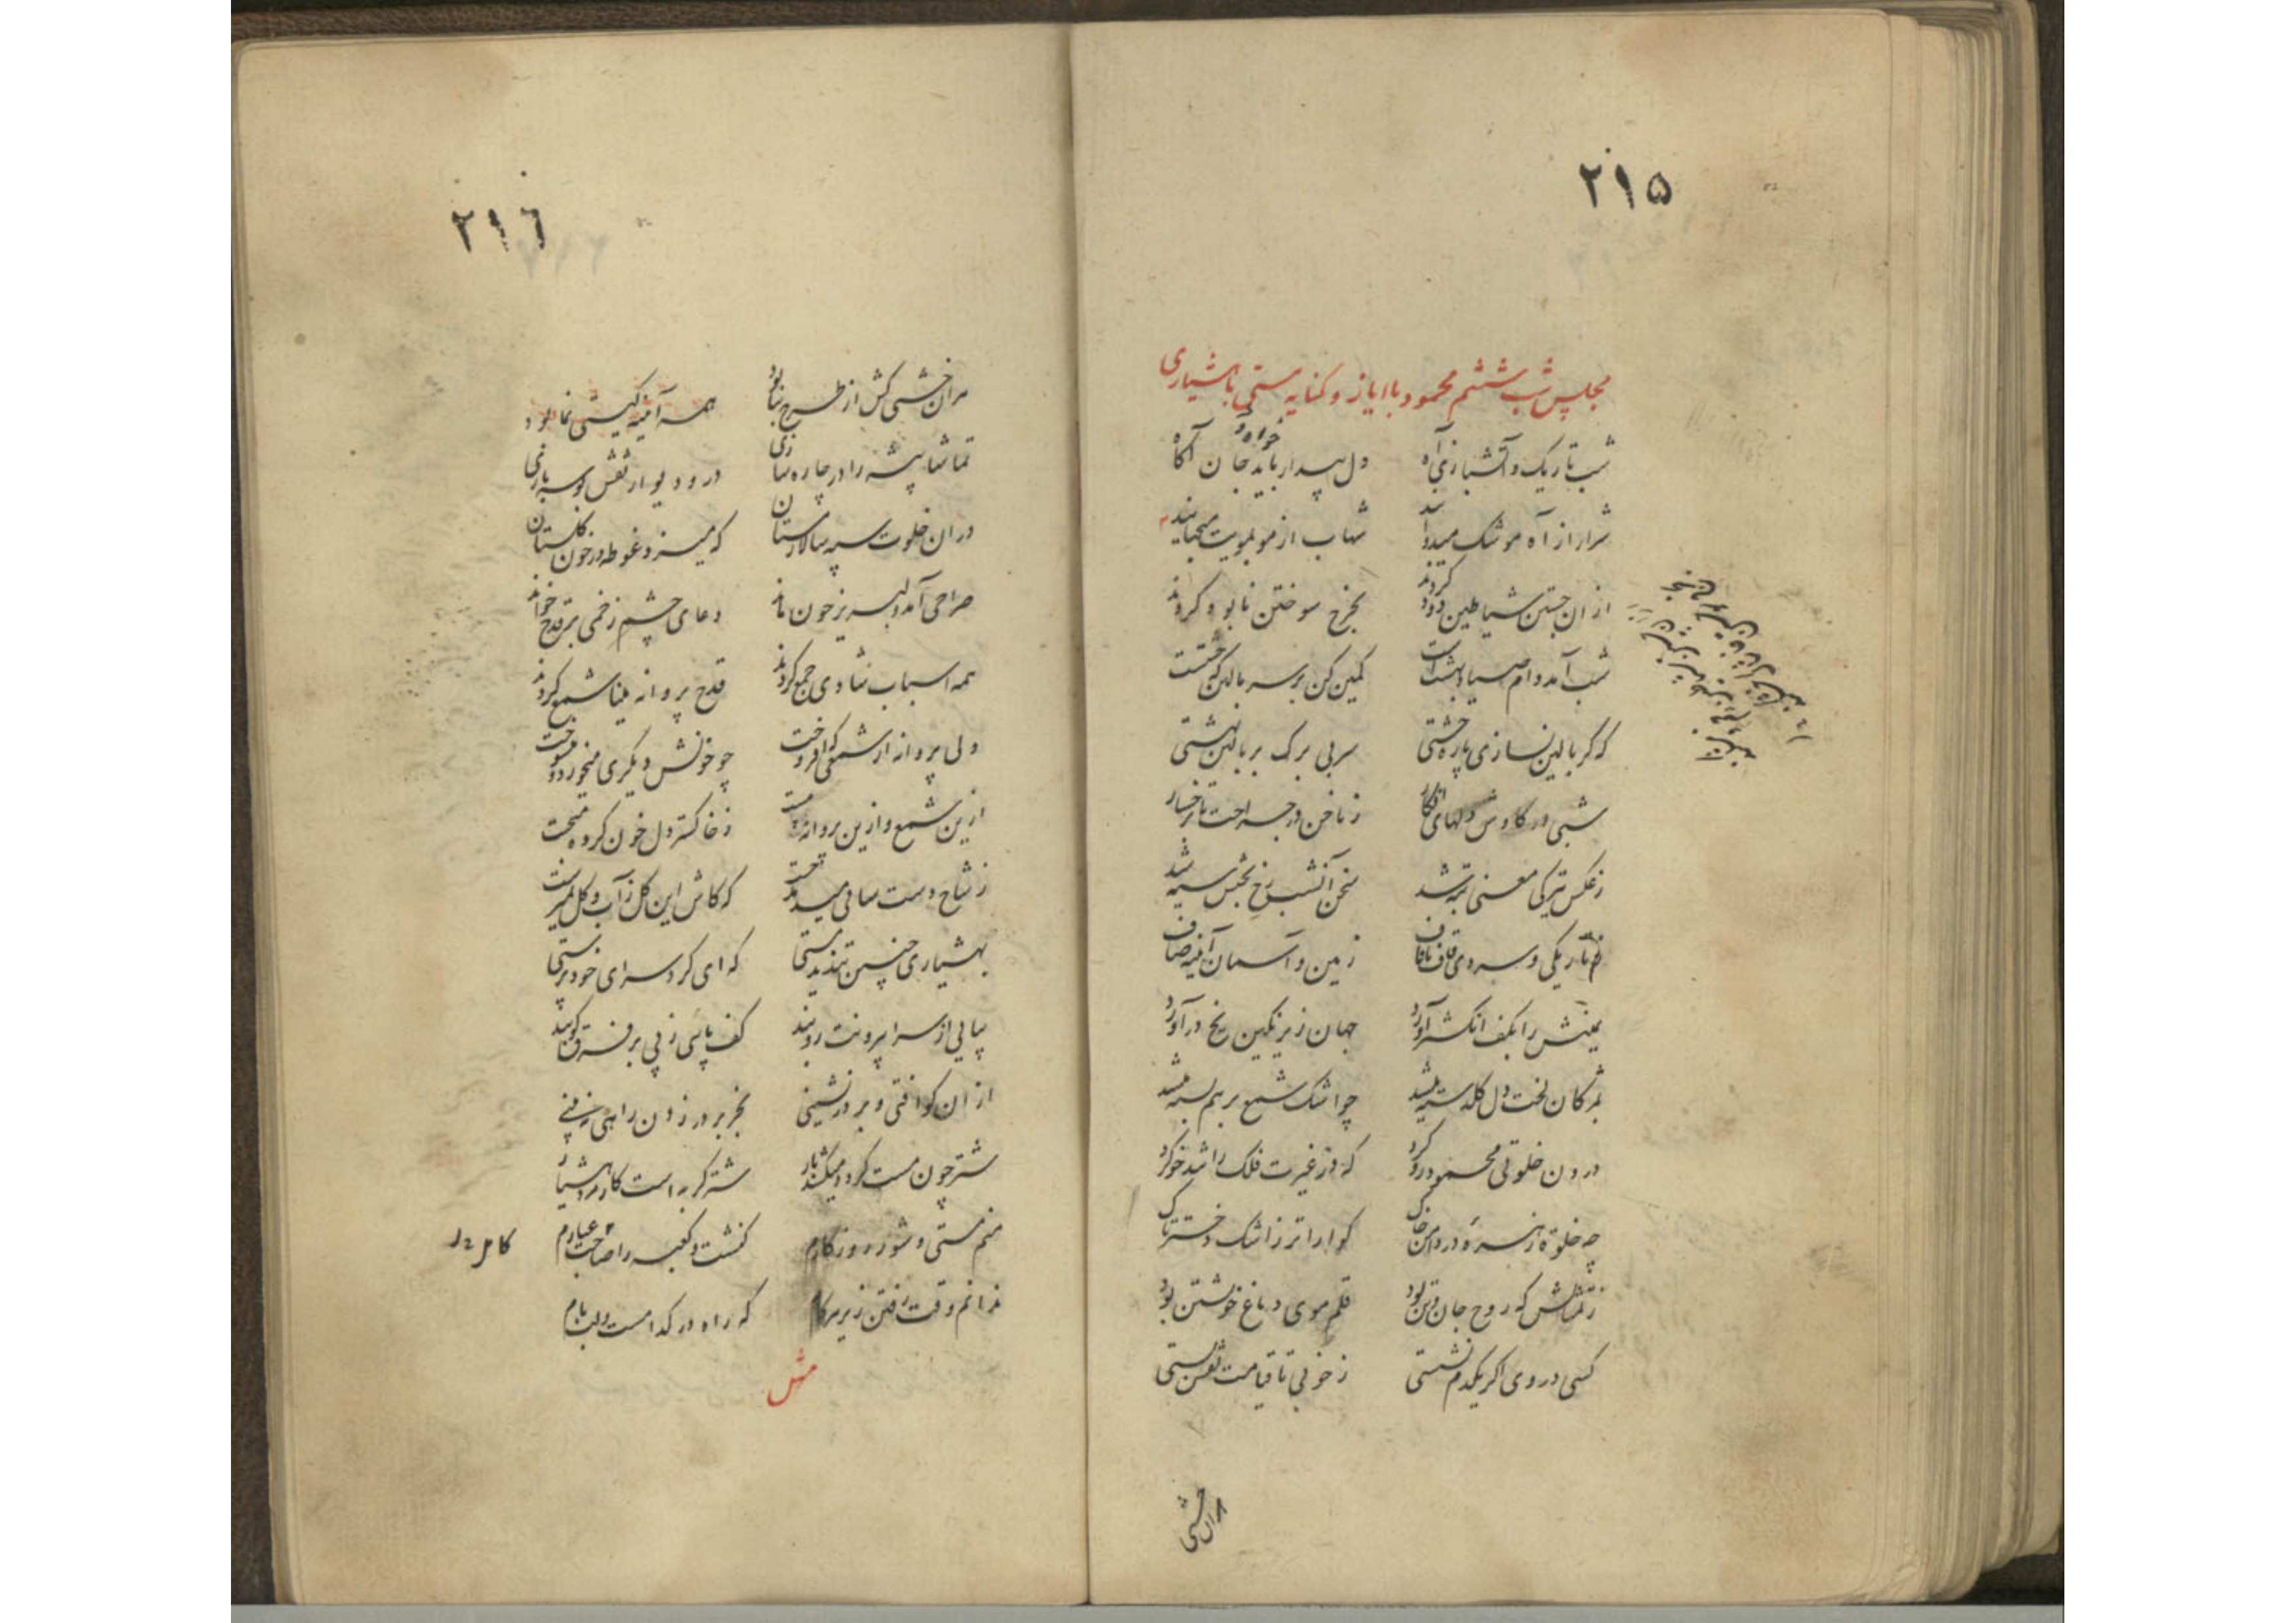 ۲۱۵
مجلس شب ششم محمود با ایاز و کنایه مستی با هشیاری
شب تاریک و آتشبازی آه
دل بیدار باید جان آگاه
شرار از آه موشک میدواند
شهاب از مو بمویت میجهاند
از ان جستن شیاطین دود کردند
بچرخ سوختن نابود کردند
شب آمد دام صیاد بهشت است
کمین کن بر سر بالین که خشتست
که گر بالین نسازی پاره خشتی
سر بی برک بر بالین بهشتی
شبی در کاوش دلهای افکار
ز ناخن در جراحت تا رخسار
ز عکس تیرکی معنی تبه شد
سخن آنشب رخ بختش سیه شد
ز تاریکی و سردی قاف تا قاف
زمین و آسمان آئینه صاف
یمینش را بکف انکشتر آورد
جهان زیر نکین یخ در آورد
بمژکان لخت دل کلدسته میشد
چو اشک شمع بر هم بسته میشد
درون خلوتی محمود رو کرد
که از غیرت فلک را شد خو کرد
چه خلوة زهره در دامن خاک
کواراتر ز اشک دختر تاک
ز نقاشش که روح جان و تن بود
قلم موی دماغ خویشتن بود
کسی در وی اکر یکدم نشستی
ز خوبی تا قیامت نقش بستی
هران خشتی
۲۱٦
هران خشتی کش از طرح بنا بود
همه آئینه کیتی نما بود
تماشا پیشه را در چاره سازی
در و دیوار نقش بوسه بازی
دران خلوت سپه سالار مستان
که میزد غوطه در خون کلستان
صراحی آمد و لبریز خون ماند
دعای چشم زخمی بر قدح خواند
همه اسباب شادی جمع کردند
قدح پروانه مینا شمع کردند
ولی پروانه از شمعی که افروخت
چو خونش دیکری میخورد و میسوخت
ازین شمع و ازین پروانه مست
ز خاکستر دل خون کرده
ز شاخ دست ساقی
که کاش این کل ز آب و کل
بهشیاری چنین تند مستی
که ای کرد سرای خود پرستی
بیایی از سرا بیرونت روبند
کف پائی ز پی بر فرق کوبند
از ان کو افتی و بر در نشینی
بجز بر در زدن راهی نه بینی
شتر چون مست کردد میکشد بار
شتر کربه است کار مرد هشیار
منم مستی و شور روزکارم
کنشت و کعبه را صاحب عیارم
ندانم وقت رفتن زیر هر کام
که راه در کدامست و لب بام
مثل